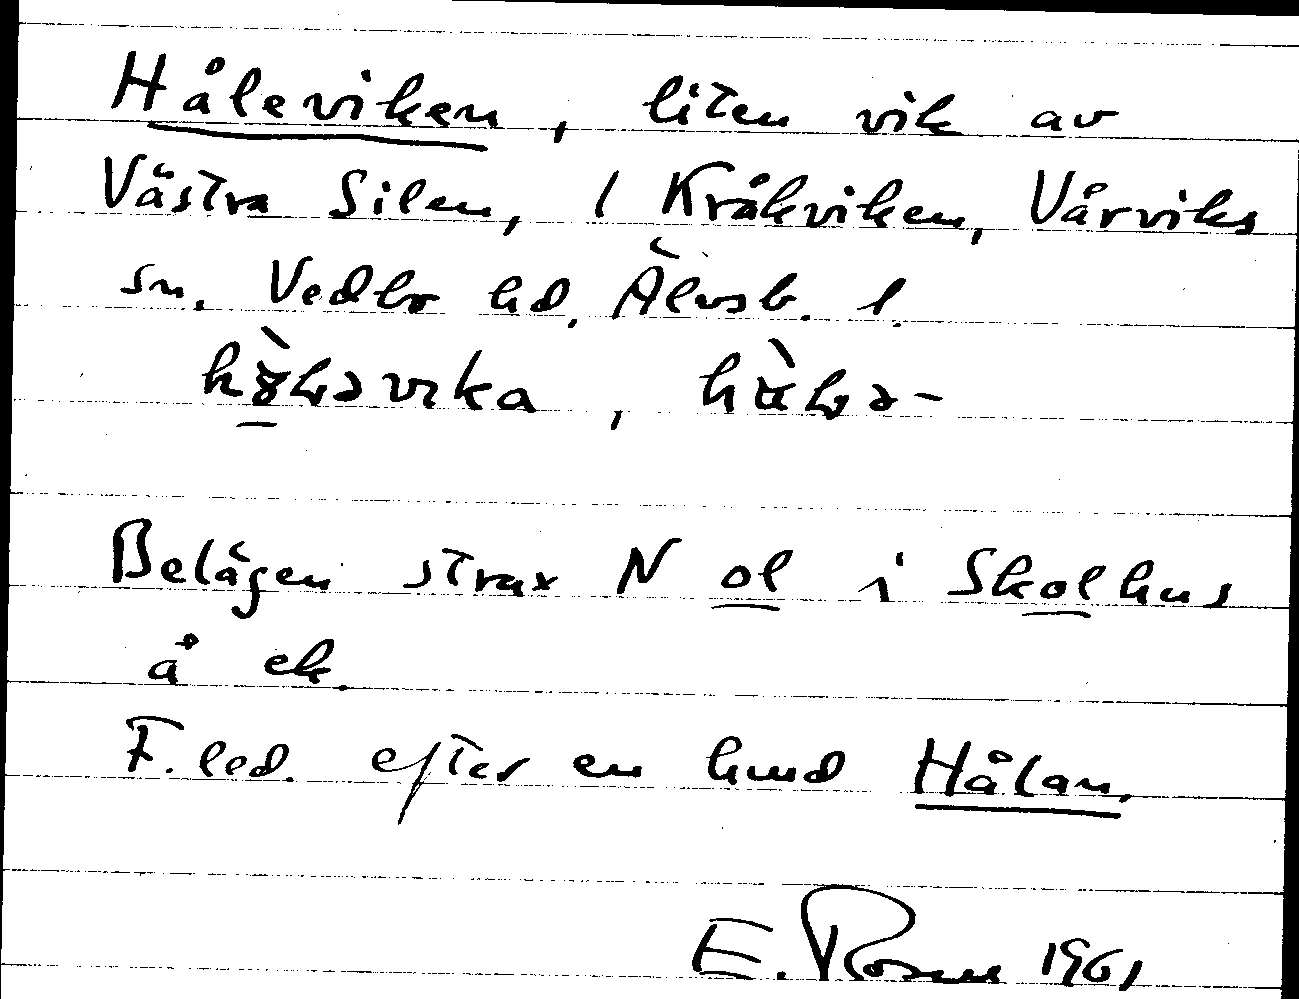 Håleviken, liten vik av
Västra Silen, / Kråkviken, Vårviks
sn. Vedbo hd. Älvsb. l.
Belägen strax N ol i Skolhus
å ek.
F. led. efter en hund Hålan.
E. Rosén 1961